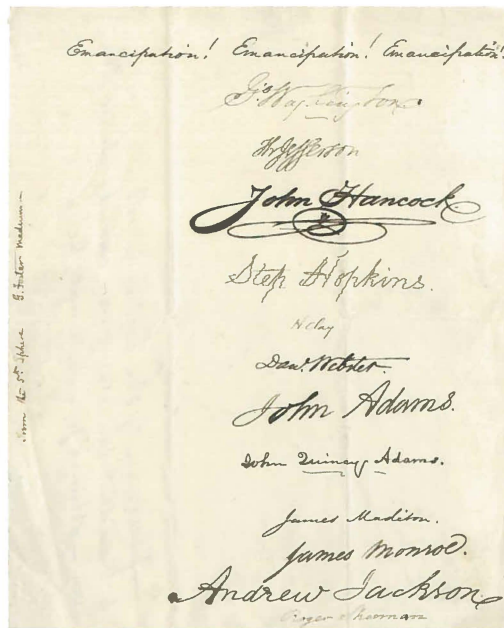 Emancipation! Emancipation! Emancipation!
Go Washington.
Th Jefferson
John Hancock
Step Hopkins.
H Clay
Danl. Webster.
John Adams.
John Quincy Adams.
James Madison.
James Monroe.
Andrew Jackson
Roger Sherman
From the 5th Sphere G. Foster Medium